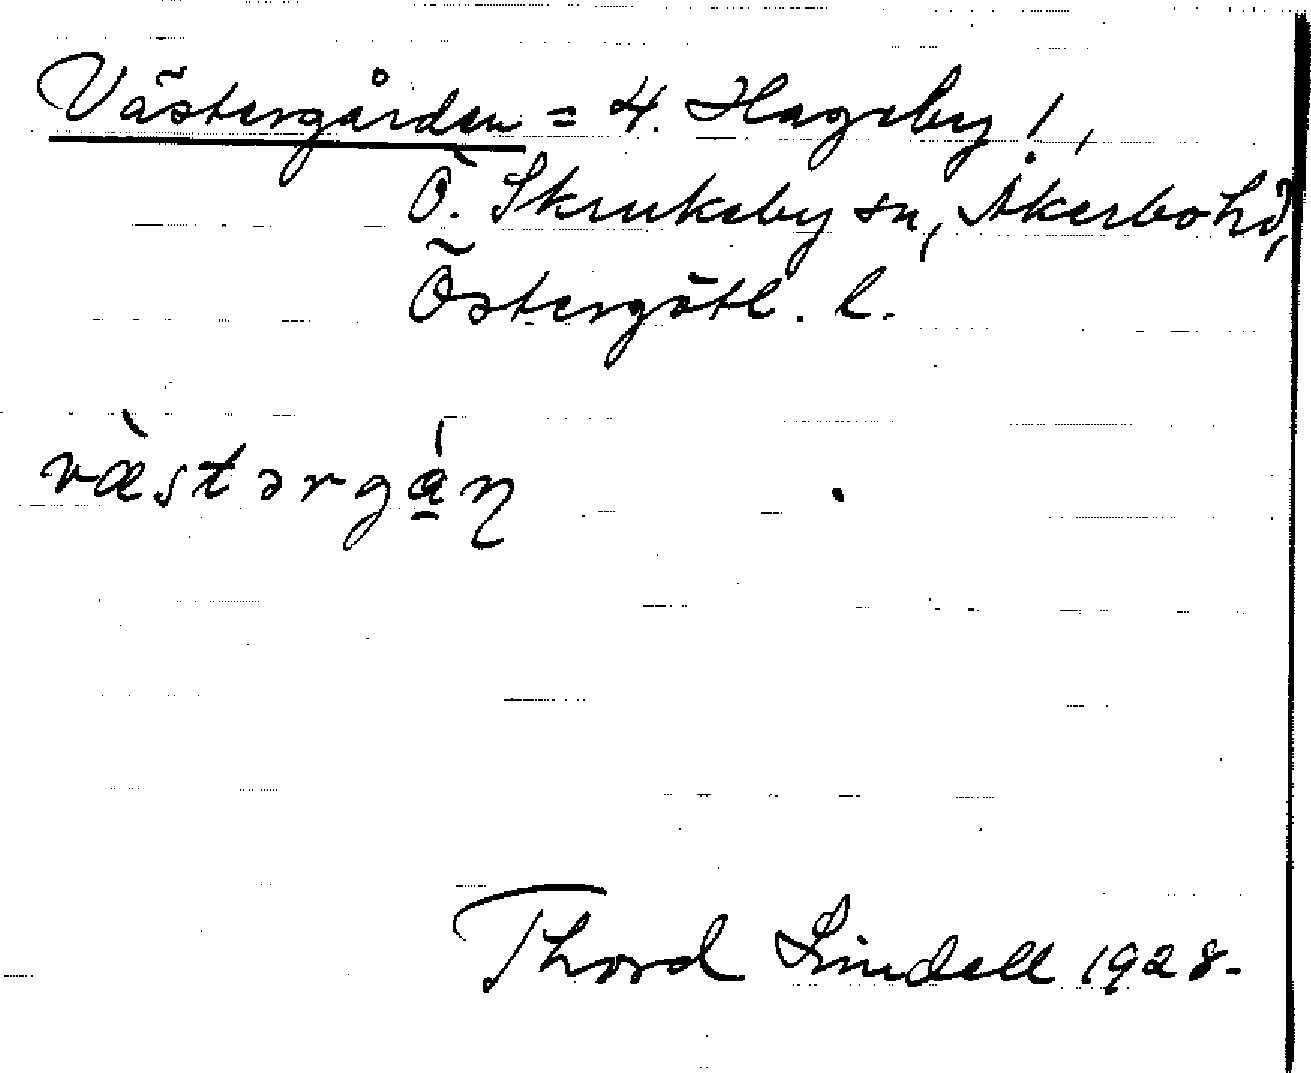 Västergården = 4. Hageby!,
Ö. Skrukeby sn, Åkerbo hd,
Östergötl. l.
væ̀stərgɑ́n̡
Thord Lindell 1928.